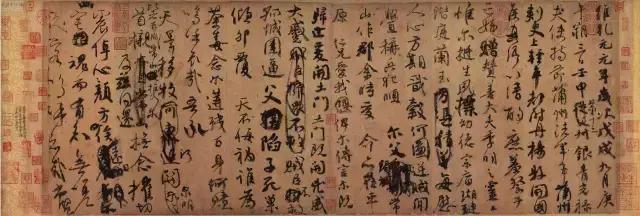 維乾元元年歲次戊戌九月庚
午朔三日壬申第十三叔銀青光祿
夫使持節蒲州諸軍事蒲州
刺史上輕車都尉丹楊縣開國
侯真卿以清酌庶羞祭于
亡姪贈贊善大夫季明之靈曰
惟爾挺生夙標幼德宗廟瑚璉
階庭蘭玉每慰
人心方期戩穀何圖逆賊閒
釁稱兵犯順爾父竭誠常
山作郡余時受命亦在平
原仁兄愛我俾爾傳言爾既
歸止爰開土門土門既開凶威
大蹙賊臣不救
孤城圍逼父陷子死巢
傾卵覆天不悔禍誰為
荼毒念爾遘殘百身何贖
嗚乎哀哉吾承
天澤移牧河關泉明
比者再陷常山攜爾
首櫬及茲同還撫念摧切
震悼心顏方俟遠日
卜爾幽宅魂而有知無嗟
久客嗚呼哀哉尚饗